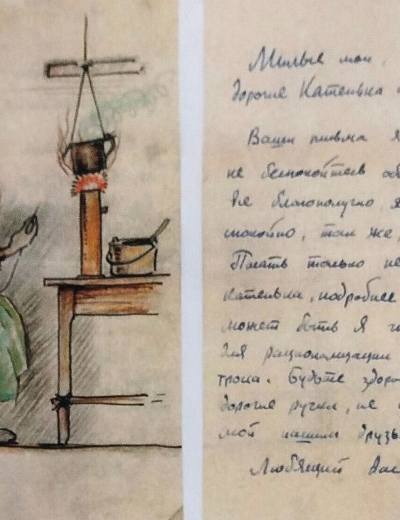 Милые мои,
дорогие Катенька
Ваши письма я
не беспокойтесь об
все благополучно, я
спокойно, там же,
Писать только не
Катенька, подробнее
может быть я
для рационализации
трона. Будьте здоро
дорогие ручки, не
мой нашим друзь
Любящий Вас